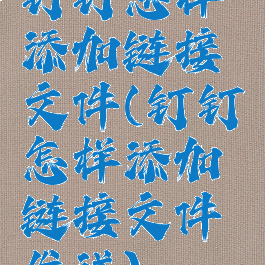 钉钉怎样
添加链接
文件(钉钉
怎样添加
链接文件